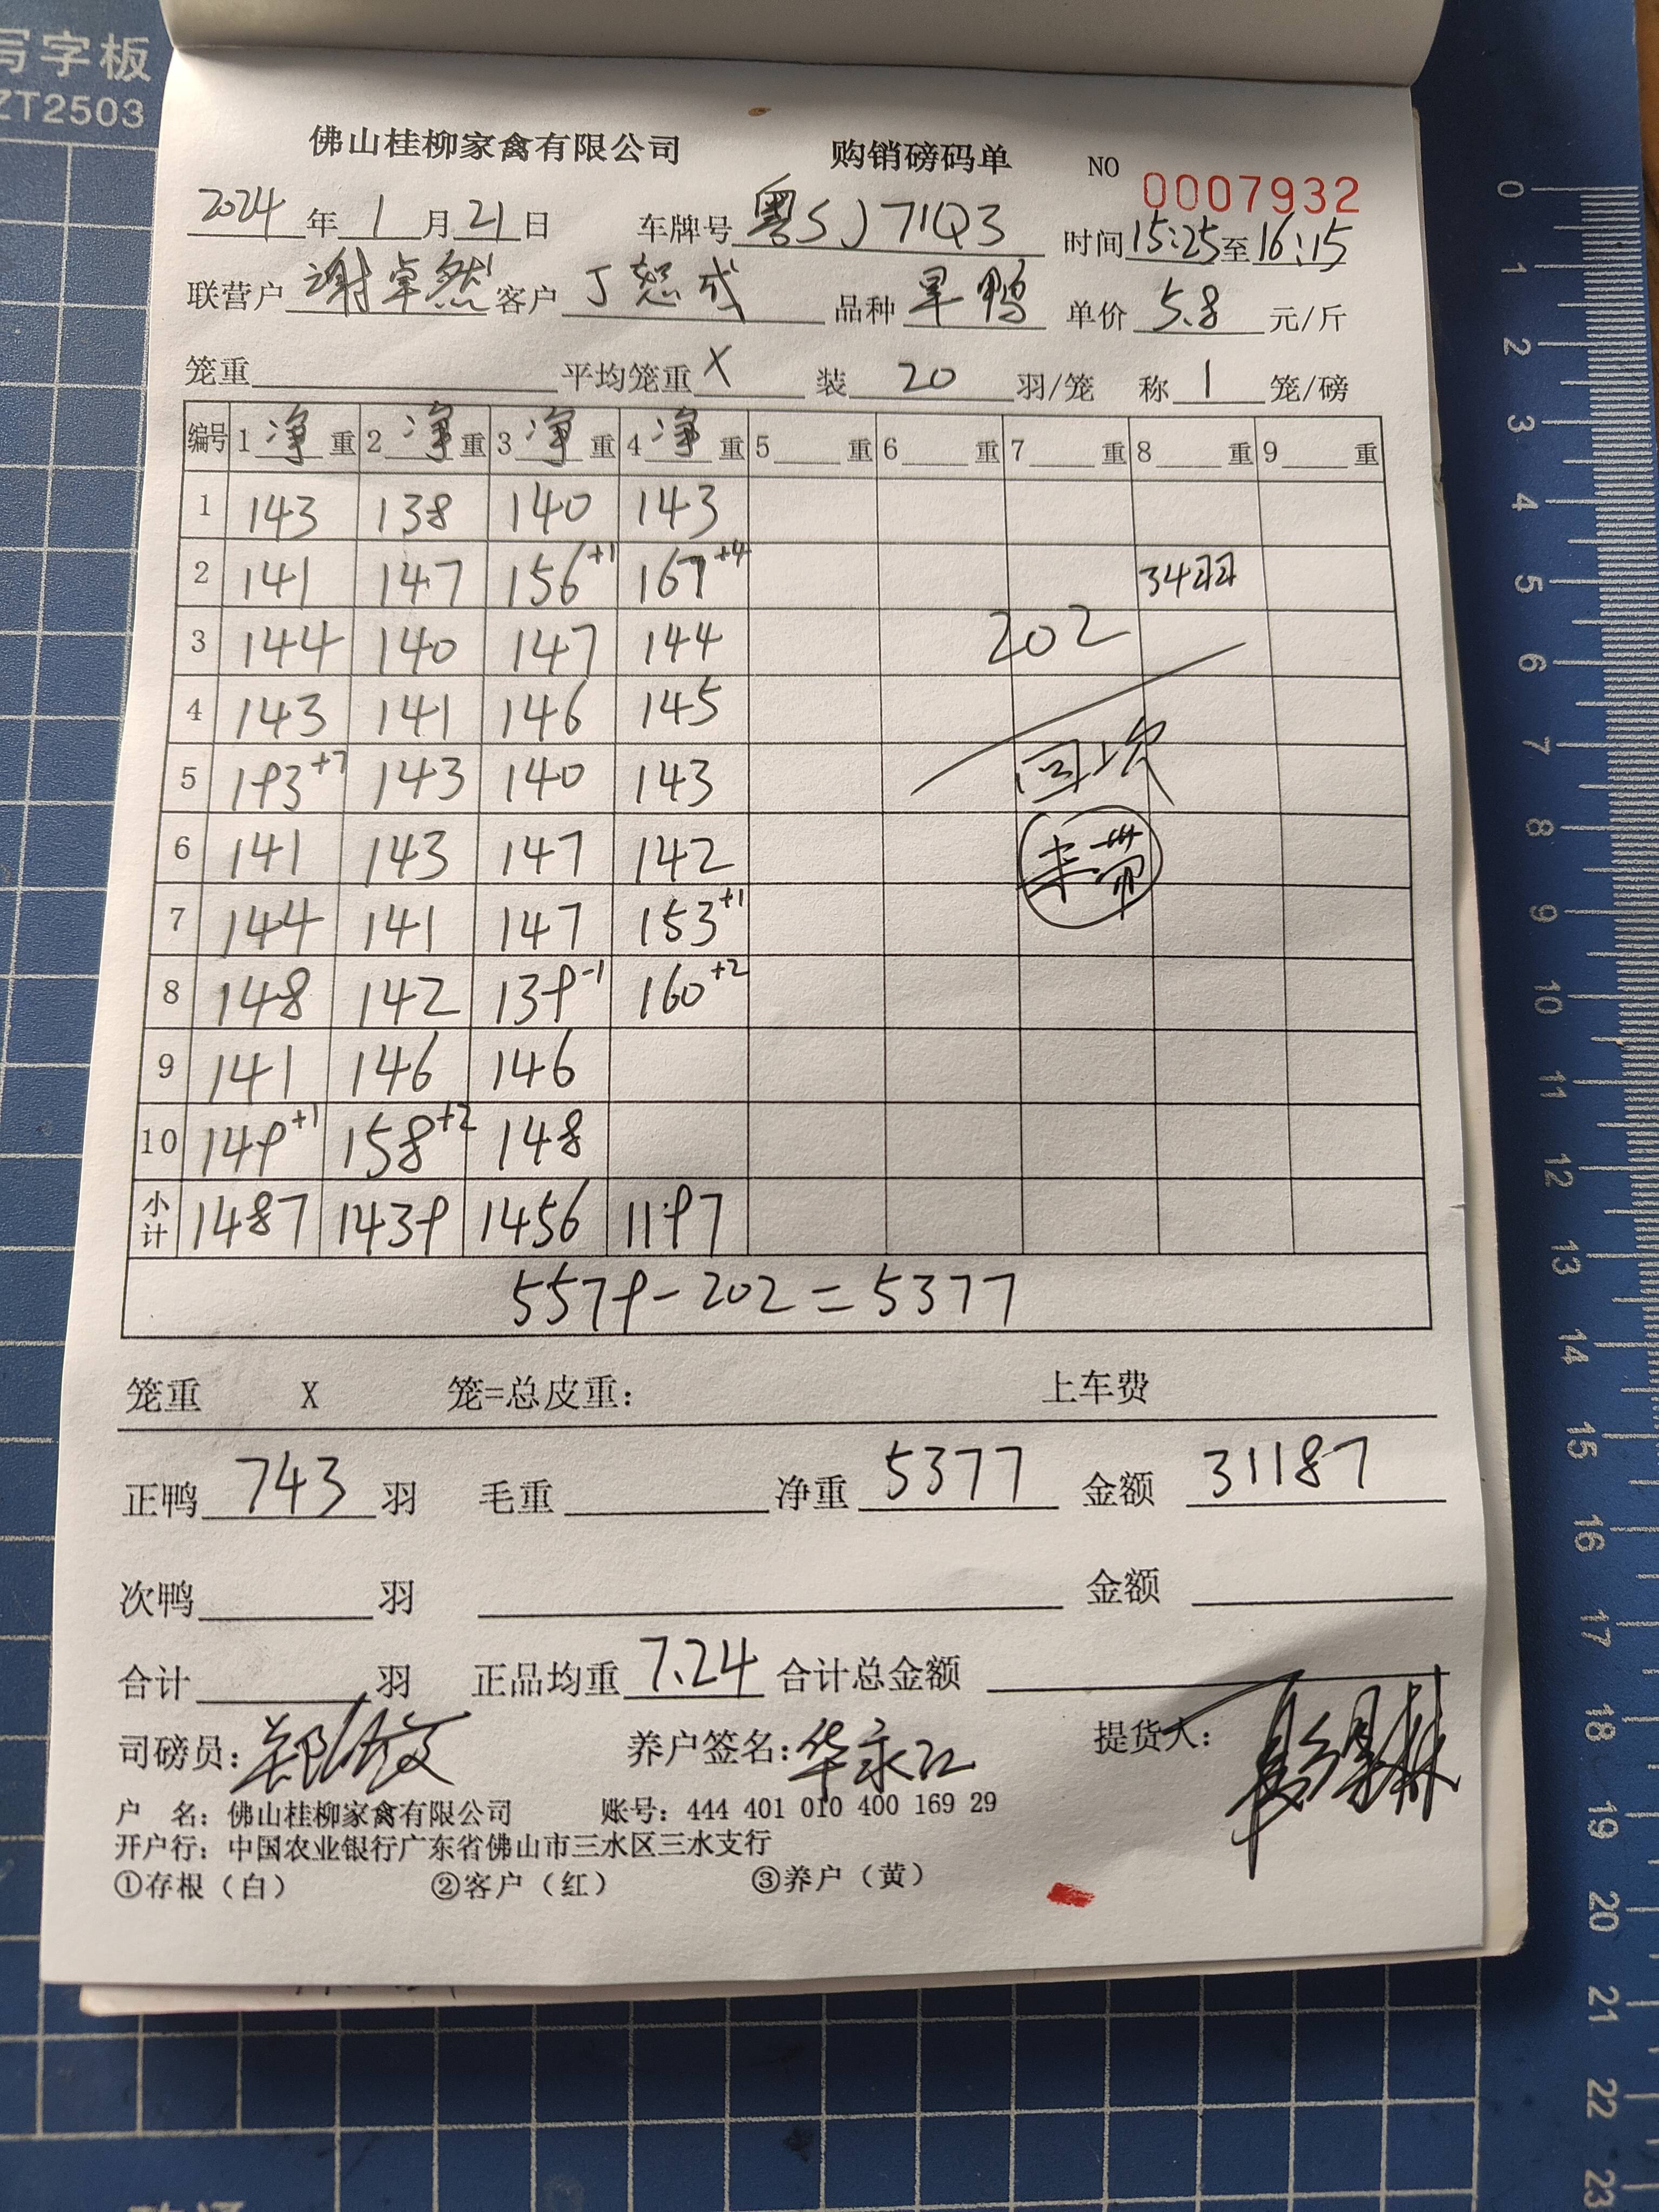 写字板
ZT2503
佛山桂柳家禽有限公司 购销磅码单 NO 0007932
2024年1月21日 车牌号粤SJ71Q3 时间15:25至16:15
联营户谢卓然客户丁恕成 品种旱鸭 单价5.8元/斤
笼重 平均笼重X 装20羽/笼 称1笼/磅
编号 1净重 2净重 3净重 4净重 5重 6重 7重 8重 9重
1 143 138 140 143
2 141 147 156+1 167+4 34羽
3 144 140 147 144 202
4 143 141 146 145
5 193+7 143 140 143 回次
6 141 143 147 142
7 144 141 147 153+1
8 148 142 139-1 160+2
9 141 146 146
10 149+1 158+2 148
小计 1487 1439 1456 1197
5579-202=5377
笼重 X 笼=总皮重: 上车费
正鸭743羽 毛重 净重5377 金额31187
次鸭 羽 金额
合计 羽 正品均重7.24合计总金额
司磅员: 养户签名:华永江 提货人:
户 名: 佛山桂柳家禽有限公司 账号: 444 401 010 400 169 29
开户行: 中国农业银行广东省佛山市三水区三水支行
①存根(白) ②客户(红) ③养户(黄)
0
1
2
3
4
5
6
7
8
9
10
11
12
13
14
15
16
17
18
19
20
21
22
23